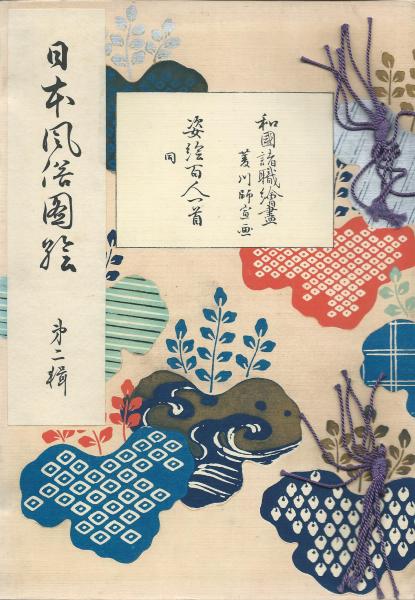 日本風俗圖絵
第二輯
和國諸職繪盡
菱川師宣画
姿絵百人一首
同